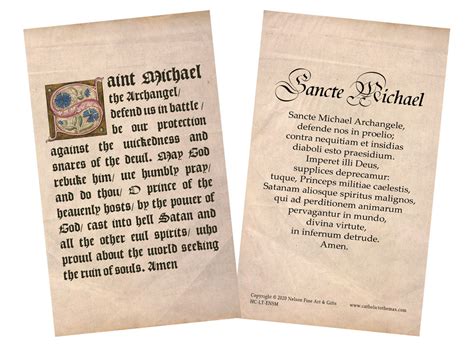 Saint Michael
the Archangel/
defend us in battle/
be our protection
against the wickedness and
snares of the devil. May God
rebuke him/ we humbly pray/
and do thou/ O prince of the
heavenly hosts/ by the power of
God/ cast into hell Satan and
all the other evil spirits/ who
prowl about the world seeking
the ruin of souls. Amen
Sancte Michael
Sancte Michael Archangele,
defende nos in proelio;
contra nequitiam et insidias
diaboli esto praesidium.
Imperet illi Deus,
supplices deprecamur:
tuque, Princeps militiae caelestis,
Satanam aliosque spiritus malignos,
qui ad perditionem animarum
pervagantur in mundo,
divina virtute,
in infernum detrude.
Amen.
Copyright © 2020 Nelson Fine Art & Gifts
HC-LT-ENSM
www.catholictothemax.com